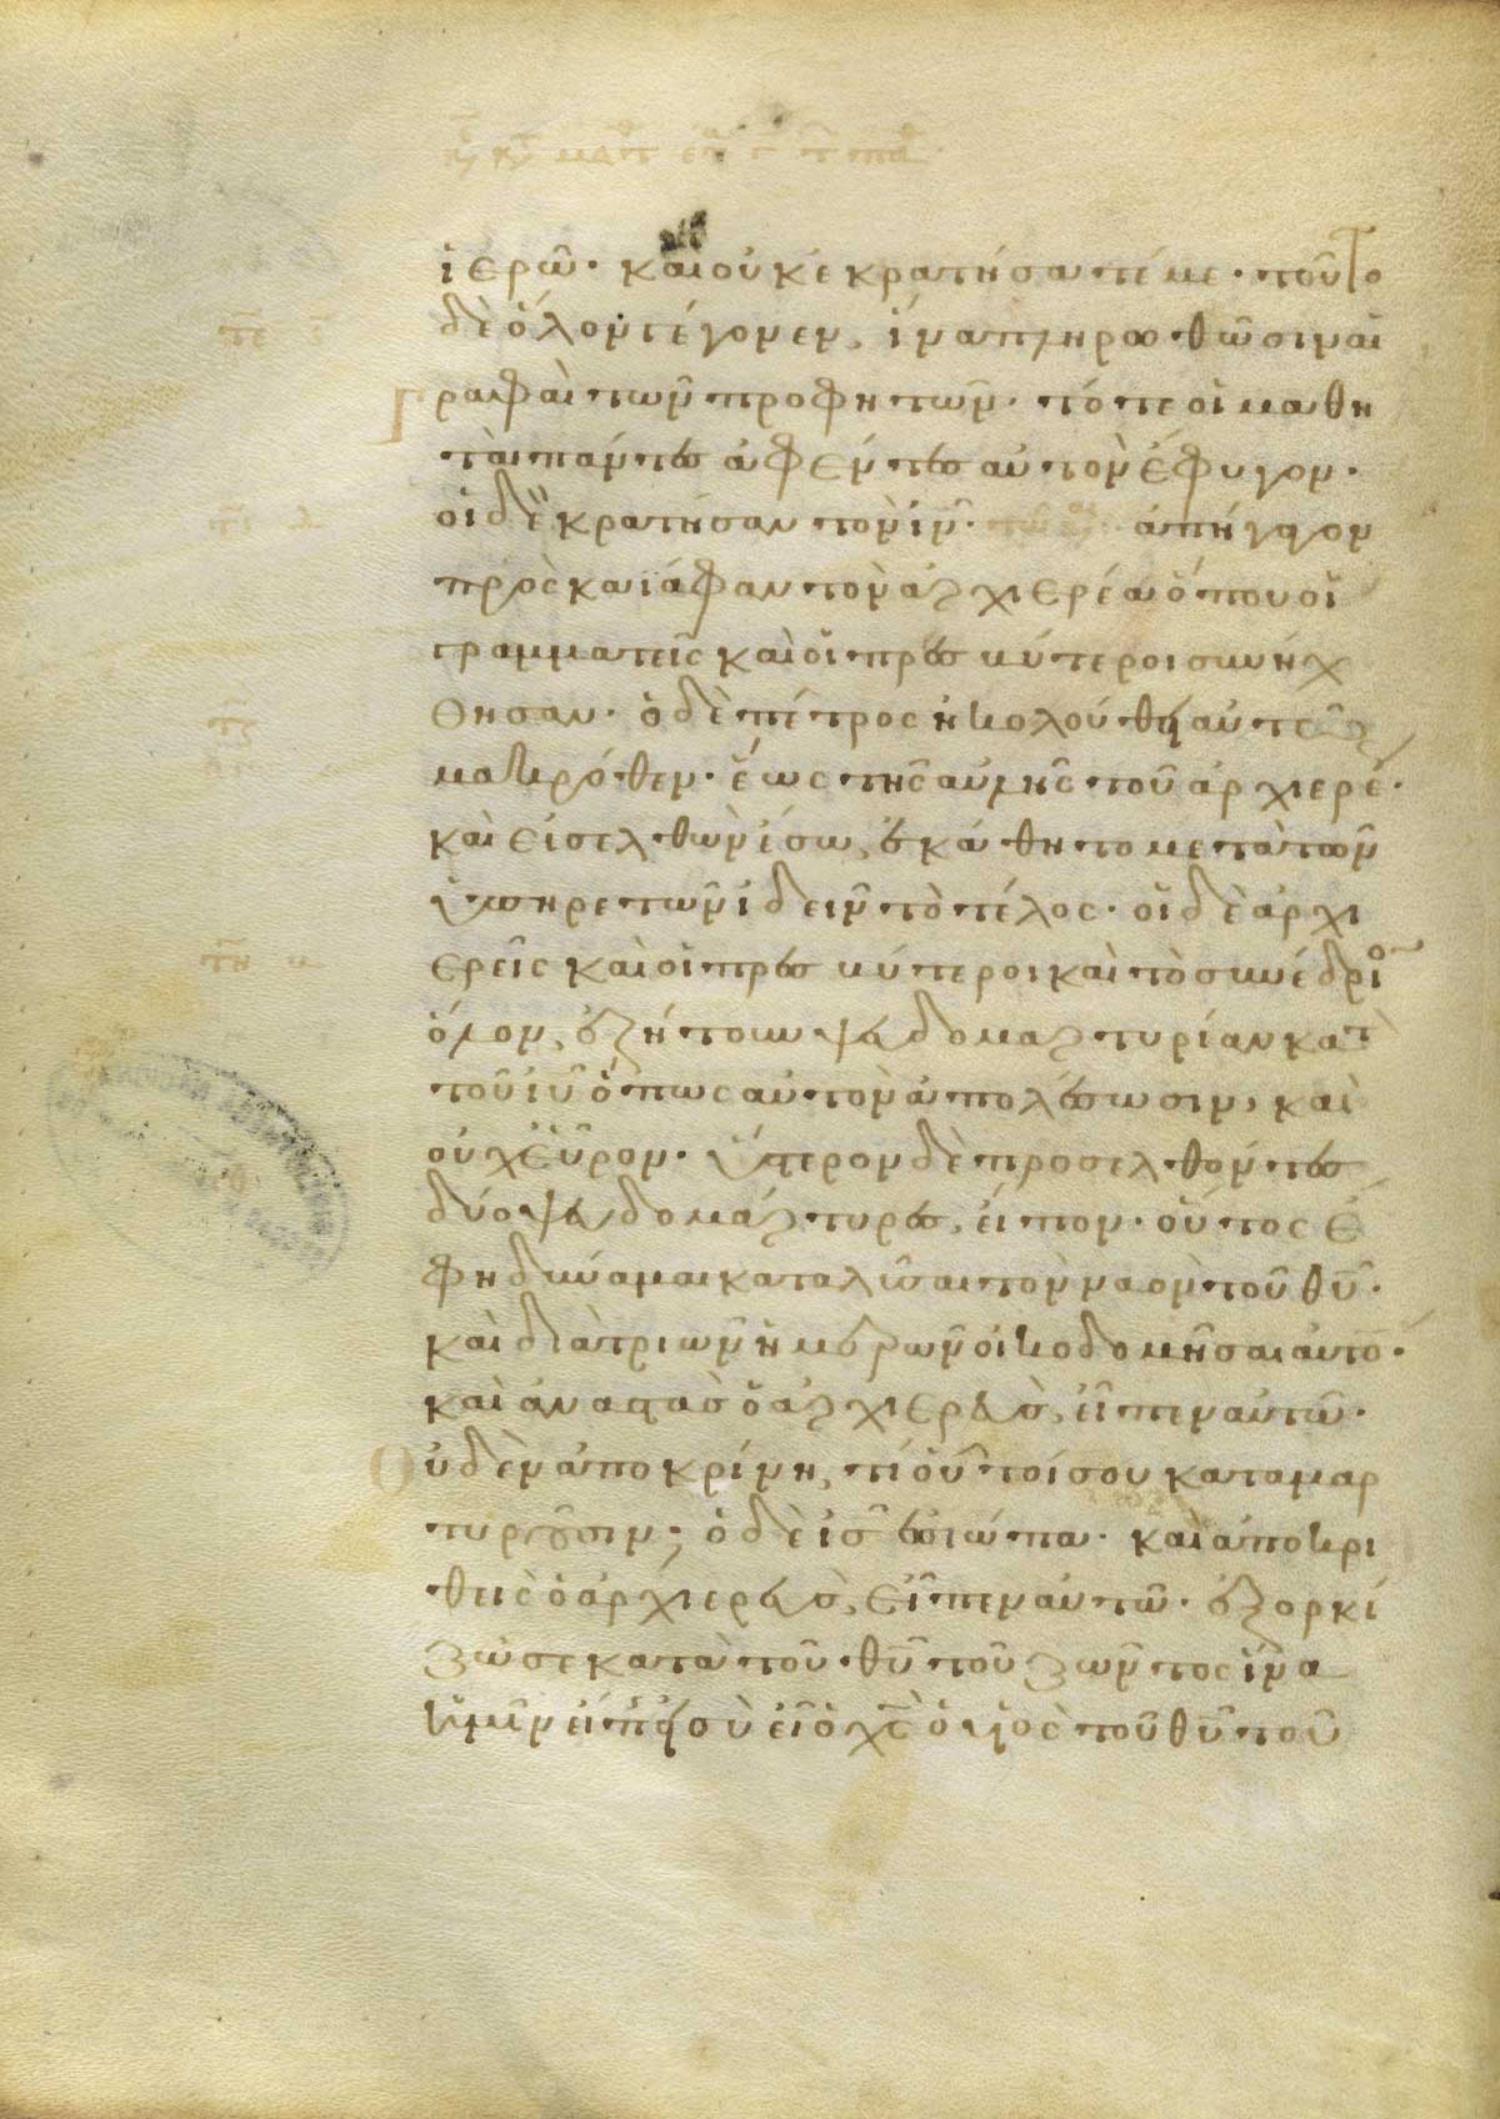 ἱερῶ· καὶ οὐκ ἐκρατήσατέ με· τοῦτο
δὲ ὅλον γέγονεν, ἵνα πληρωθῶσιν αἱ
Γραφαὶ τῶν προφητῶν· τότε οἱ μαθη
ταὶ πάντες ἀφέντες αὐτὸν ἔφυγον·
οἱ δὲ κρατήσαντες τὸν ἰν̅· ἀπήγαγον
πρὸς καϊάφαν τὸν ἀρχιερέα ὅπου οἱ
γραμματεῖς καὶ οἱ πρεσβύτεροι συνήχ
θησαν· ὁ δὲ πέτρος ἠκολούθει αὐτῶ
μακρόθεν· ἕως τῆς αὐλῆς τοῦ ἀρχιερέ·
καὶ εἰσελθὼν ἔσω, ἐκάθητο μετὰ τῶν
ὑπηρετῶν ἰδεῖν τὸ τέλος· οἱ δὲ ἀρχι
ερεῖς καὶ οἱ πρεσβύτεροι καὶ τὸ συνέδριο
ὅλον, ἐζήτουν ψευδομαρτυρίαν κατ
τοῦ ἰυ̅ ὅπως αὐτὸν ἀπολέσωσιν, καὶ
οὐχ εὗρον· ὕστερον δὲ προσελθόντες
δύο ψευδομάρτυρες, εἶπον· οὗτος ἔ
φη δύναμαι καταλῦσαι τὸν ναὸν τοῦ θυ̅·
καὶ διὰ τριῶν ἡμερῶν οἰκοδομῆσαι αὐτό·
καὶ ἀναστὰς ὁ ἀρχιερεὺς, εἶπεν αὐτῶ·
Οὐδὲν ἀποκρίνη, τί οὗτοί σου καταμαρ
τυροῦσιν; ὁ δὲ ἰς̅ ἐσιώπα· καὶ ἀποκρι
θεὶς ὁ ἀρχιερεὺς, εἶπεν αὐτῶ· ἐξορκί
ζω σε κατὰ τοῦ θυ̅ τοῦ ζῶντος ἵνα
ἡμῖν εἴπης εἰ σὺ εἶ ὁ χς̅ ὁ υἱὸς τοῦ θυ̅ τοῦ